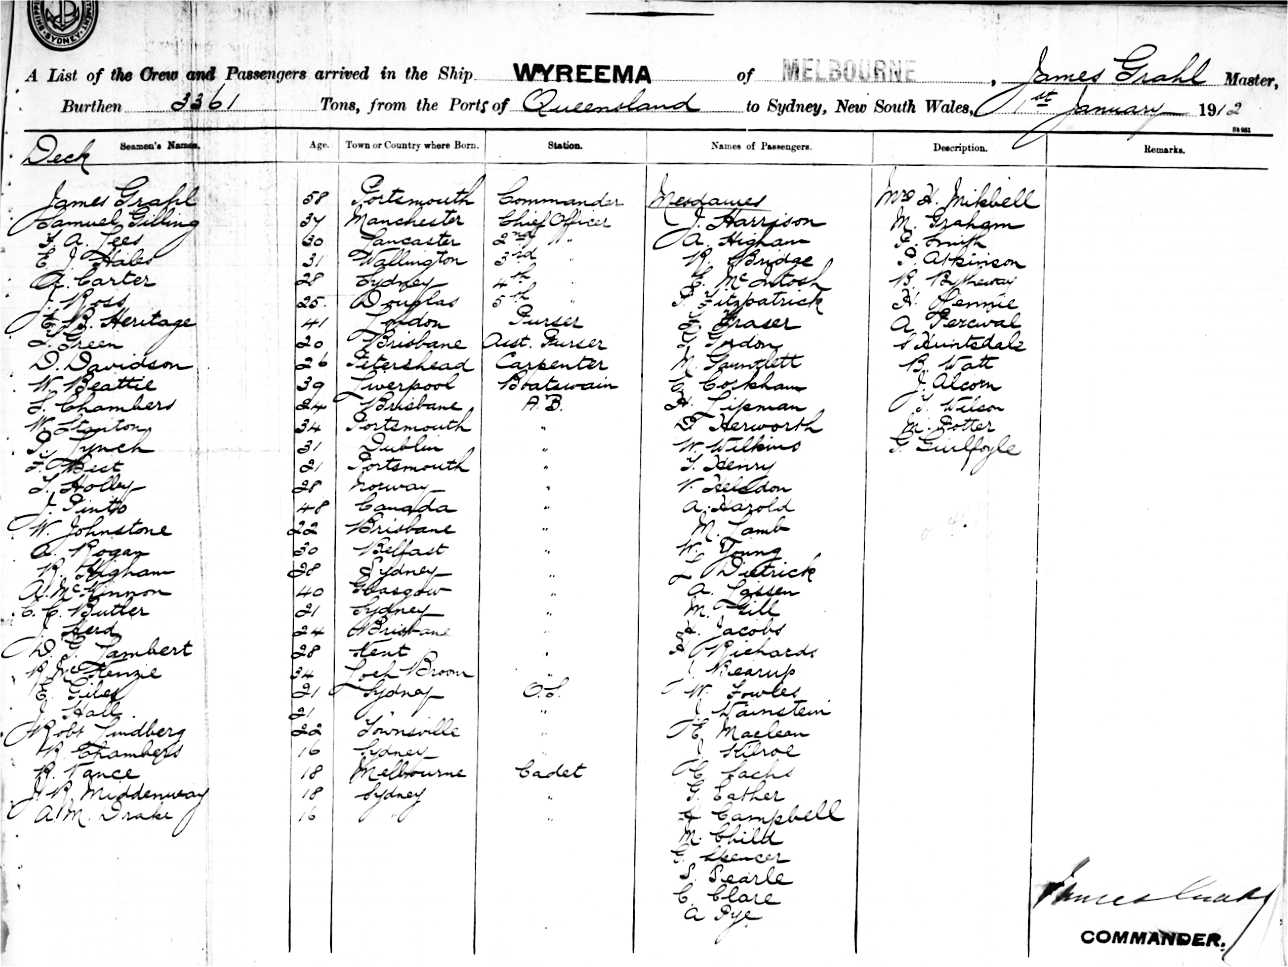 SYDNEY
A List of the Crew and Passengers arrived in the Ship WYREEMA of MELBOURNE, James Grahl Master,
Burthen 3361 Tons, from the Ports of Queensland to Sydney, New South Wales, 1st January 1912
Seamen's Names. Age. Town or Country where Born. Station. Names of Passengers. Description. Remarks.
Deck
James Grahl 58 Portsmouth Commander Mesdames Mrs H. Mikbell
Samuel Gilling 37 Manchester Chief Officer J. Harrison M. Graham
A. Lees 30 Lancaster 2nd " A. Higham E. Smith
E. J. Hales 31 Wallington 3rd " R. Bridge P. Atkinson
A. Carter 28 Sydney 4th " E. McIntosh R. Bytheway
J. Ross 25 Douglas 5th " Fitzpatrick H. Rennie
E. B. Heritage 41 London Purser Fraser A. Percival
Green 20 Brisbane Asst. Purser Gordon Huntsdale
D. Davidson 26 Peterhead Carpenter M. Gauntlett B. Watt
W. Beattie 39 Liverpool Boatswain Cockham J. Alcorn
Chambers 24 Brisbane A.B. H. Lipman Wilson
W. Stanton 34 Portsmouth " Herworth M. Potter
P. Lynch 31 Dublin " W. Wilkins G. Guilfoyle
West 21 Portsmouth " Henry
Holley 28 Norway " Neildon
J. Pinto 48 Canada " A. Harold
W. Johnstone 22 Brisbane " M. Lamb
A. Rogan 30 Belfast " W. Young
R. Higham 28 Sydney " L. Dietrick
A. McKinnon 40 Glasgow " A. Lassen
C. C. Butler 21 Sydney " M. Gill
Herd 24 Brisbane " Jacobs
D. G. Lambert 28 Kent " Richards
R. McKenzie 34 Loch Broom " Rearup
E. Giles 21 Sydney O.S. W. Fowles
J. Hall 21 " " Wainstein
Robt Lindberg 22 Townsville " E. Maclean
R. Chambers 16 Sydney " J. Kilroe
R. Vance 18 Melbourne Cadet E. Sachs
R. Middenway 18 Sydney " G. Eather
A. M. Drake 16 " " Campbell
M. Child
G. Spencer
S. Searle
C. Clare
A. Pye
James Grahl
COMMANDER.